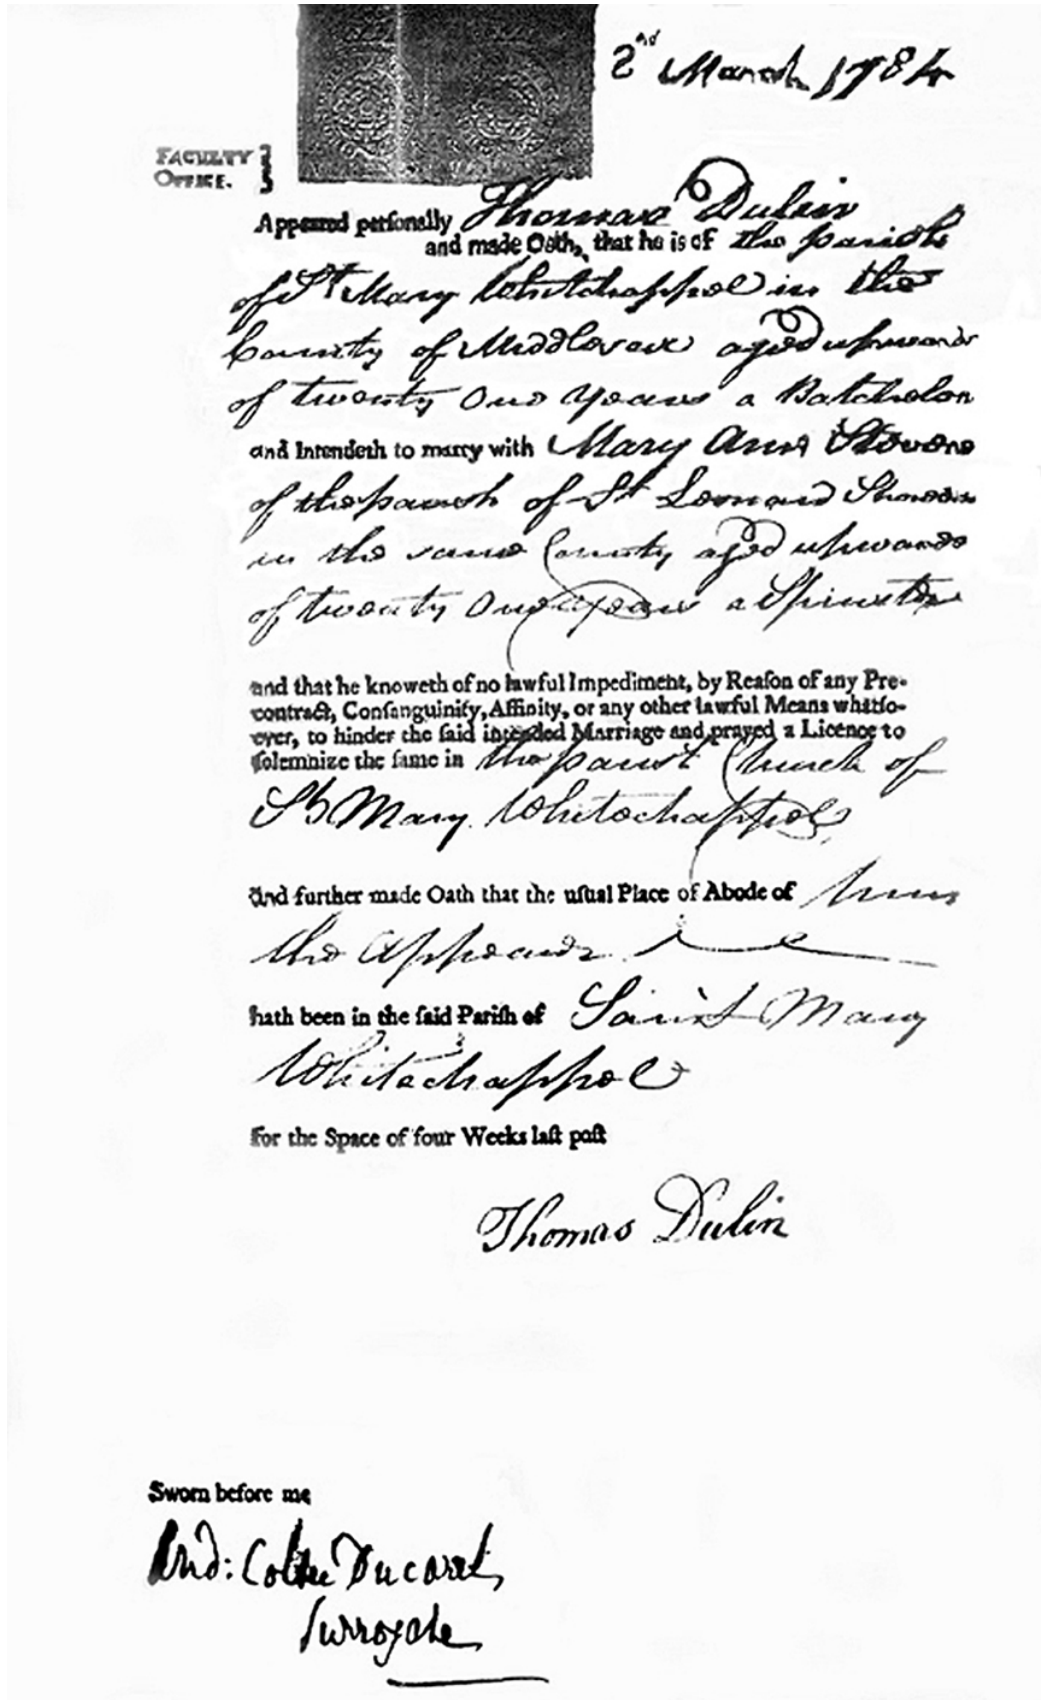 2nd March 1784
FACULTY
OFFICE.
Appeared personally Thomas Dulin
and made Oath, that he is of the parish
of St Mary Whitechappel in the
County of Middlesex aged upwards
of twenty One Years a Batchelor
and Intendeth to marry with Mary Ann Stevens
of the parish of St Leonard Shoreditch
in the same County aged upwards
of twenty One Years a Spinster
and that he knoweth of no lawful Impediment, by Reaſon of any Pre-
contract, Conſanguinity, Affinity, or any other lawful Means whatſo-
ever, to hinder the ſaid intended Marriage and prayed a Licence to
ſolemnize the ſame in the parish Church of
St Mary Whitechappel
And further made Oath that the uſual Place of Abode of him
the Appearer
hath been in the ſaid Pariſh of Saint Mary
Whitechappel
For the Space of four Weeks laſt paſt
Thomas Dulin
Sworn before me
And: Coltee Ducarel,
Surrogate